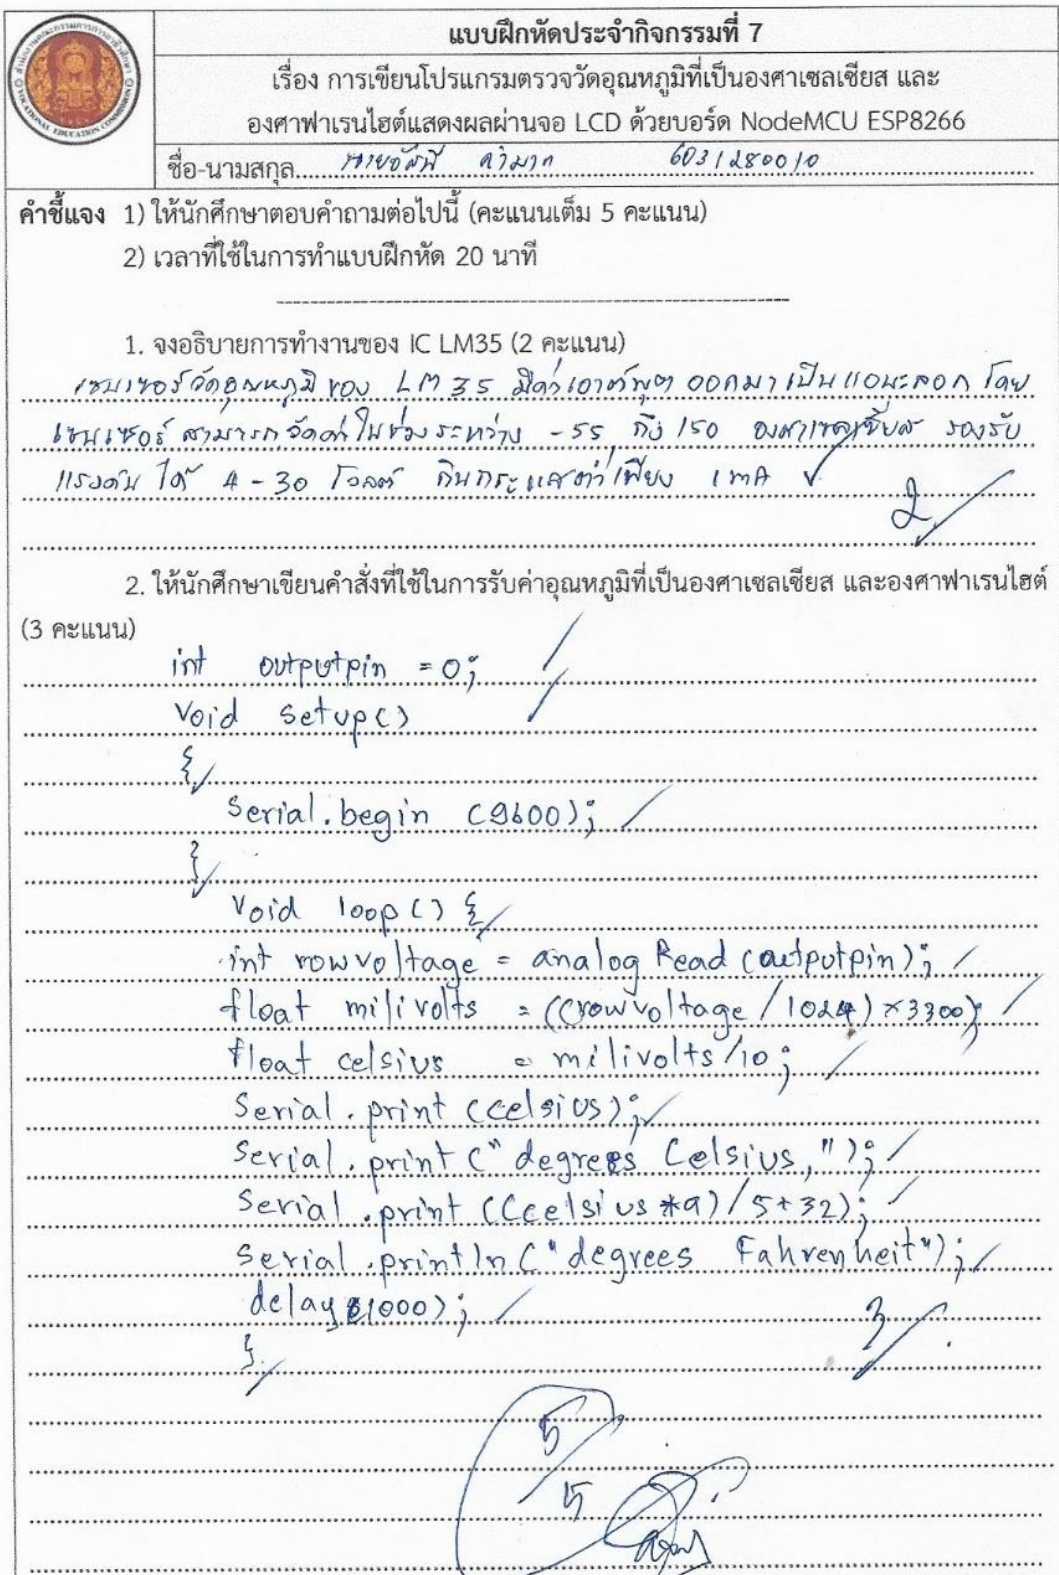 แบบฝึกหัดประจำกิจกรรมที่ 7
เรื่อง การเขียนโปรแกรมตรวจวัดอุณหภูมิที่เป็นองศาเซลเซียส และ
องศาฟาเรนไฮต์แสดงผลผ่านจอ LCD ด้วยบอร์ด NodeMCU ESP8266
ชื่อ-นามสกุล..... 6031280010
คำชี้แจง 1) ให้นักศึกษาตอบคำถามต่อไปนี้ (คะแนนเต็ม 5 คะแนน)
2) เวลาที่ใช้ในการทำแบบฝึกหัด 20 นาที
1. จงอธิบายการทำงานของ IC LM35 (2 คะแนน)
เซนเซอร์วัดอุณหภูมิของ LM35 มีค่าเอาต์พุตออกมาเป็นแอนะลอก โดย
เซนเซอร์สามารถวัดค่าในช่วงระหว่าง -55 ถึง 150 องศาเซลเซียส รองรับ
แรงดันได้ 4-30 โวลต์ กินกระแสต่ำเพียง 1mA
2
2. ให้นักศึกษาเขียนคำสั่งที่ใช้ในการรับค่าอุณหภูมิที่เป็นองศาเซลเซียส และองศาฟาเรนไฮต์
(3 คะแนน)
int outputpin = 0;
void setup()
{
Serial.begin (9600);
}
void loop() {
int rowvoltage = analogRead (outputpin);
float milivolts = ((rowvoltage / 1024) × 3300);
float celsius = milivolts/10;
Serial.print (celsius);
Serial.print (" degrees Celsius,");
Serial.print ((celsius *9)/5+32);
Serial.println (" degrees Fahrenheit");
delay(1000);
}
3
5
5